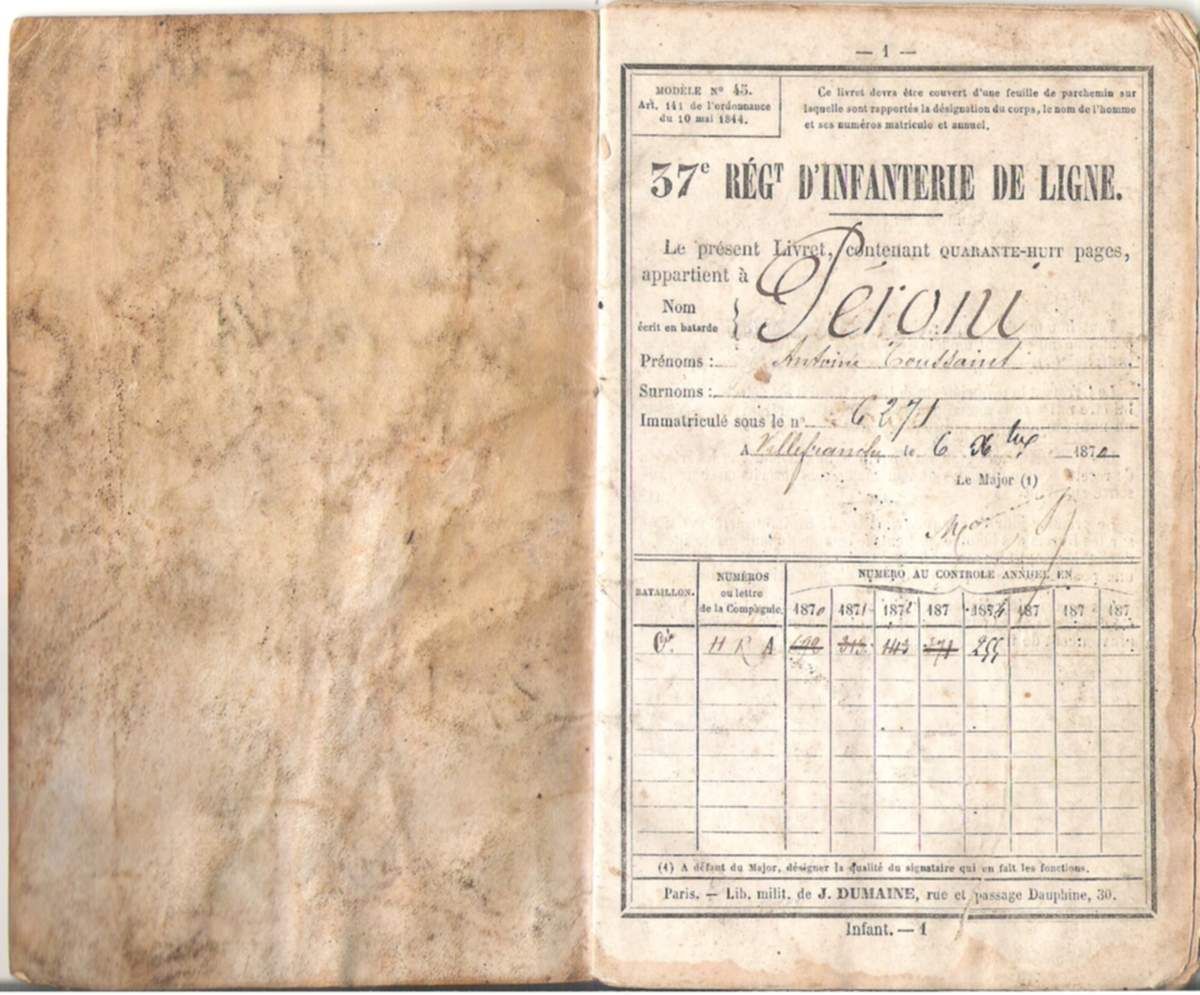 — 1 —
MODÈLE N° 45.
Art. 141 de l'ordonnance
du 10 mai 1844.
Ce livret devra être couvert d'une feuille de parchemin sur
laquelle sont rapportés la désignation du corps, le nom de l'homme
et ses numéros matricule et annuel.
37e RÉGT D'INFANTERIE DE LIGNE.
Le présent Livret, contenant QUARANTE-HUIT pages,
appartient à
Nom
écrit en batarde } Péroni
Prénoms : Antoine Toussaint
Surnoms :
Immatriculé sous le n° 6271
A Villefranche le 6 Xbre 1870
Le Major (1)
BATAILLON.
NUMÉROS
ou lettre
de la Compagnie.
NUMÉRO AU CONTROLE ANNUEL EN
1870 1871 1872 187 1874 187 187 187
H R A 313 143 371 255
(1) A défaut du Major, désigner la qualité du signataire qui en fait les fonctions.
Paris. — Lib. milit. de J. DUMAINE, rue et passage Dauphine, 30.
Infant. — 1